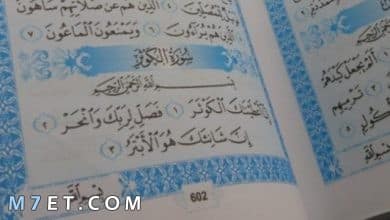 فَوَيْلٌ لِلْمُصَلِّينَ ٤ الَّذِينَ هُمْ عَن صَلَاتِهِمْ سَاهُونَ
٥ الَّذِينَ هُمْ يُرَاءُونَ ٦ وَيَمْنَعُونَ الْمَاعُونَ ٧
سُورَةُ الْكَوْثَرِ
بِسْمِ اللَّهِ الرَّحْمَٰنِ الرَّحِيمِ
أَعْطَيْنَاكَ الْكَوْثَرَ ١ فَصَلِّ لِرَبِّكَ وَانْحَرْ ٢
إِنَّ شَانِئَكَ هُوَ الْأَبْتَرُ ٣
602
أَلَمْ يَجْعَلْ كَيْدَهُمْ
تَرْمِيهِم
M7ET.COM